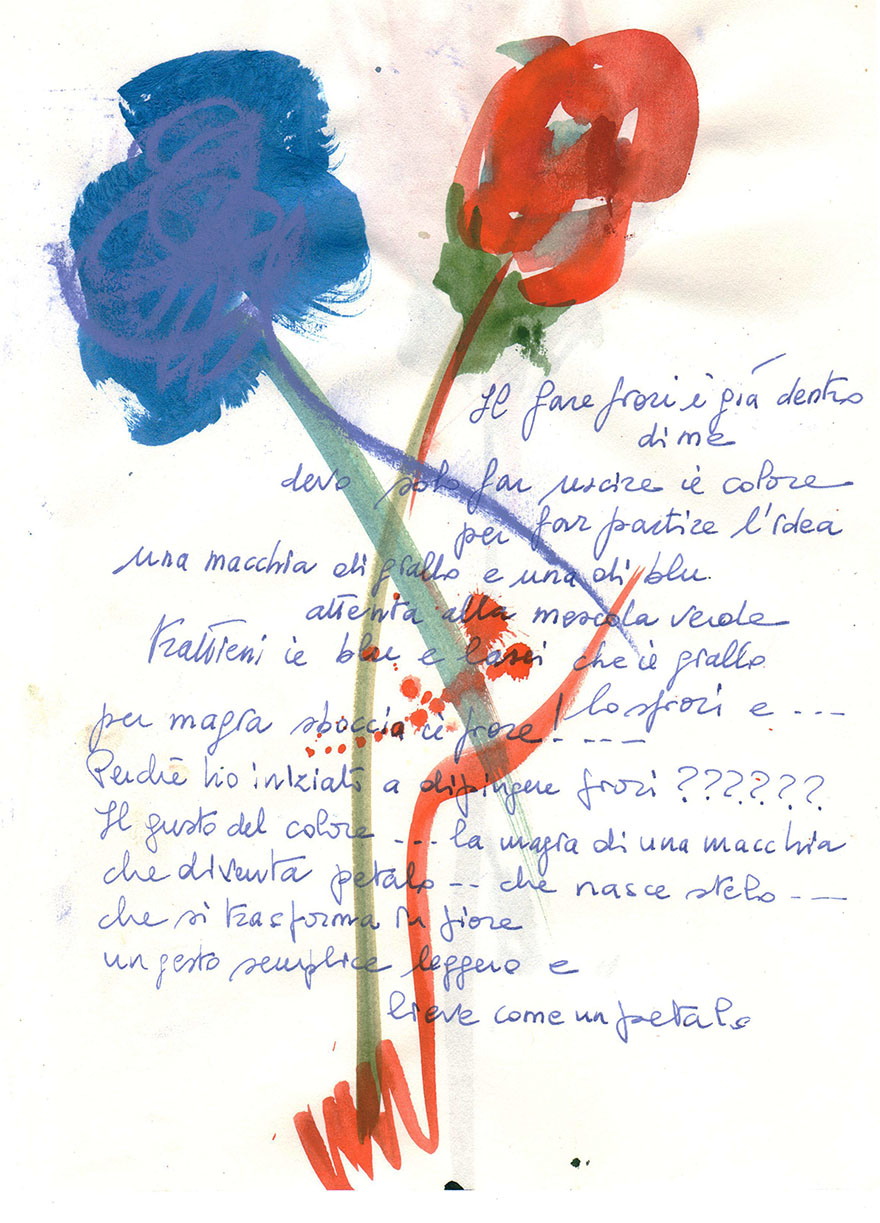 Il fare fiori è già dentro
di me
devo solo far uscire il colore
per far partire l'idea
una macchia di giallo e una di blu
attenta alla mescola verde
trattieni il blu e lasci che il giallo
lo sfiori e ---
per magia sboccia il fiore! ----
Perchè ho iniziato a dipingere fiori ??????
Il gusto del colore --- la magia di una macchia
che diventa petalo -- che nasce stelo ---
che si trasforma in fiore
un gesto semplice leggero e
lieve come un petalo